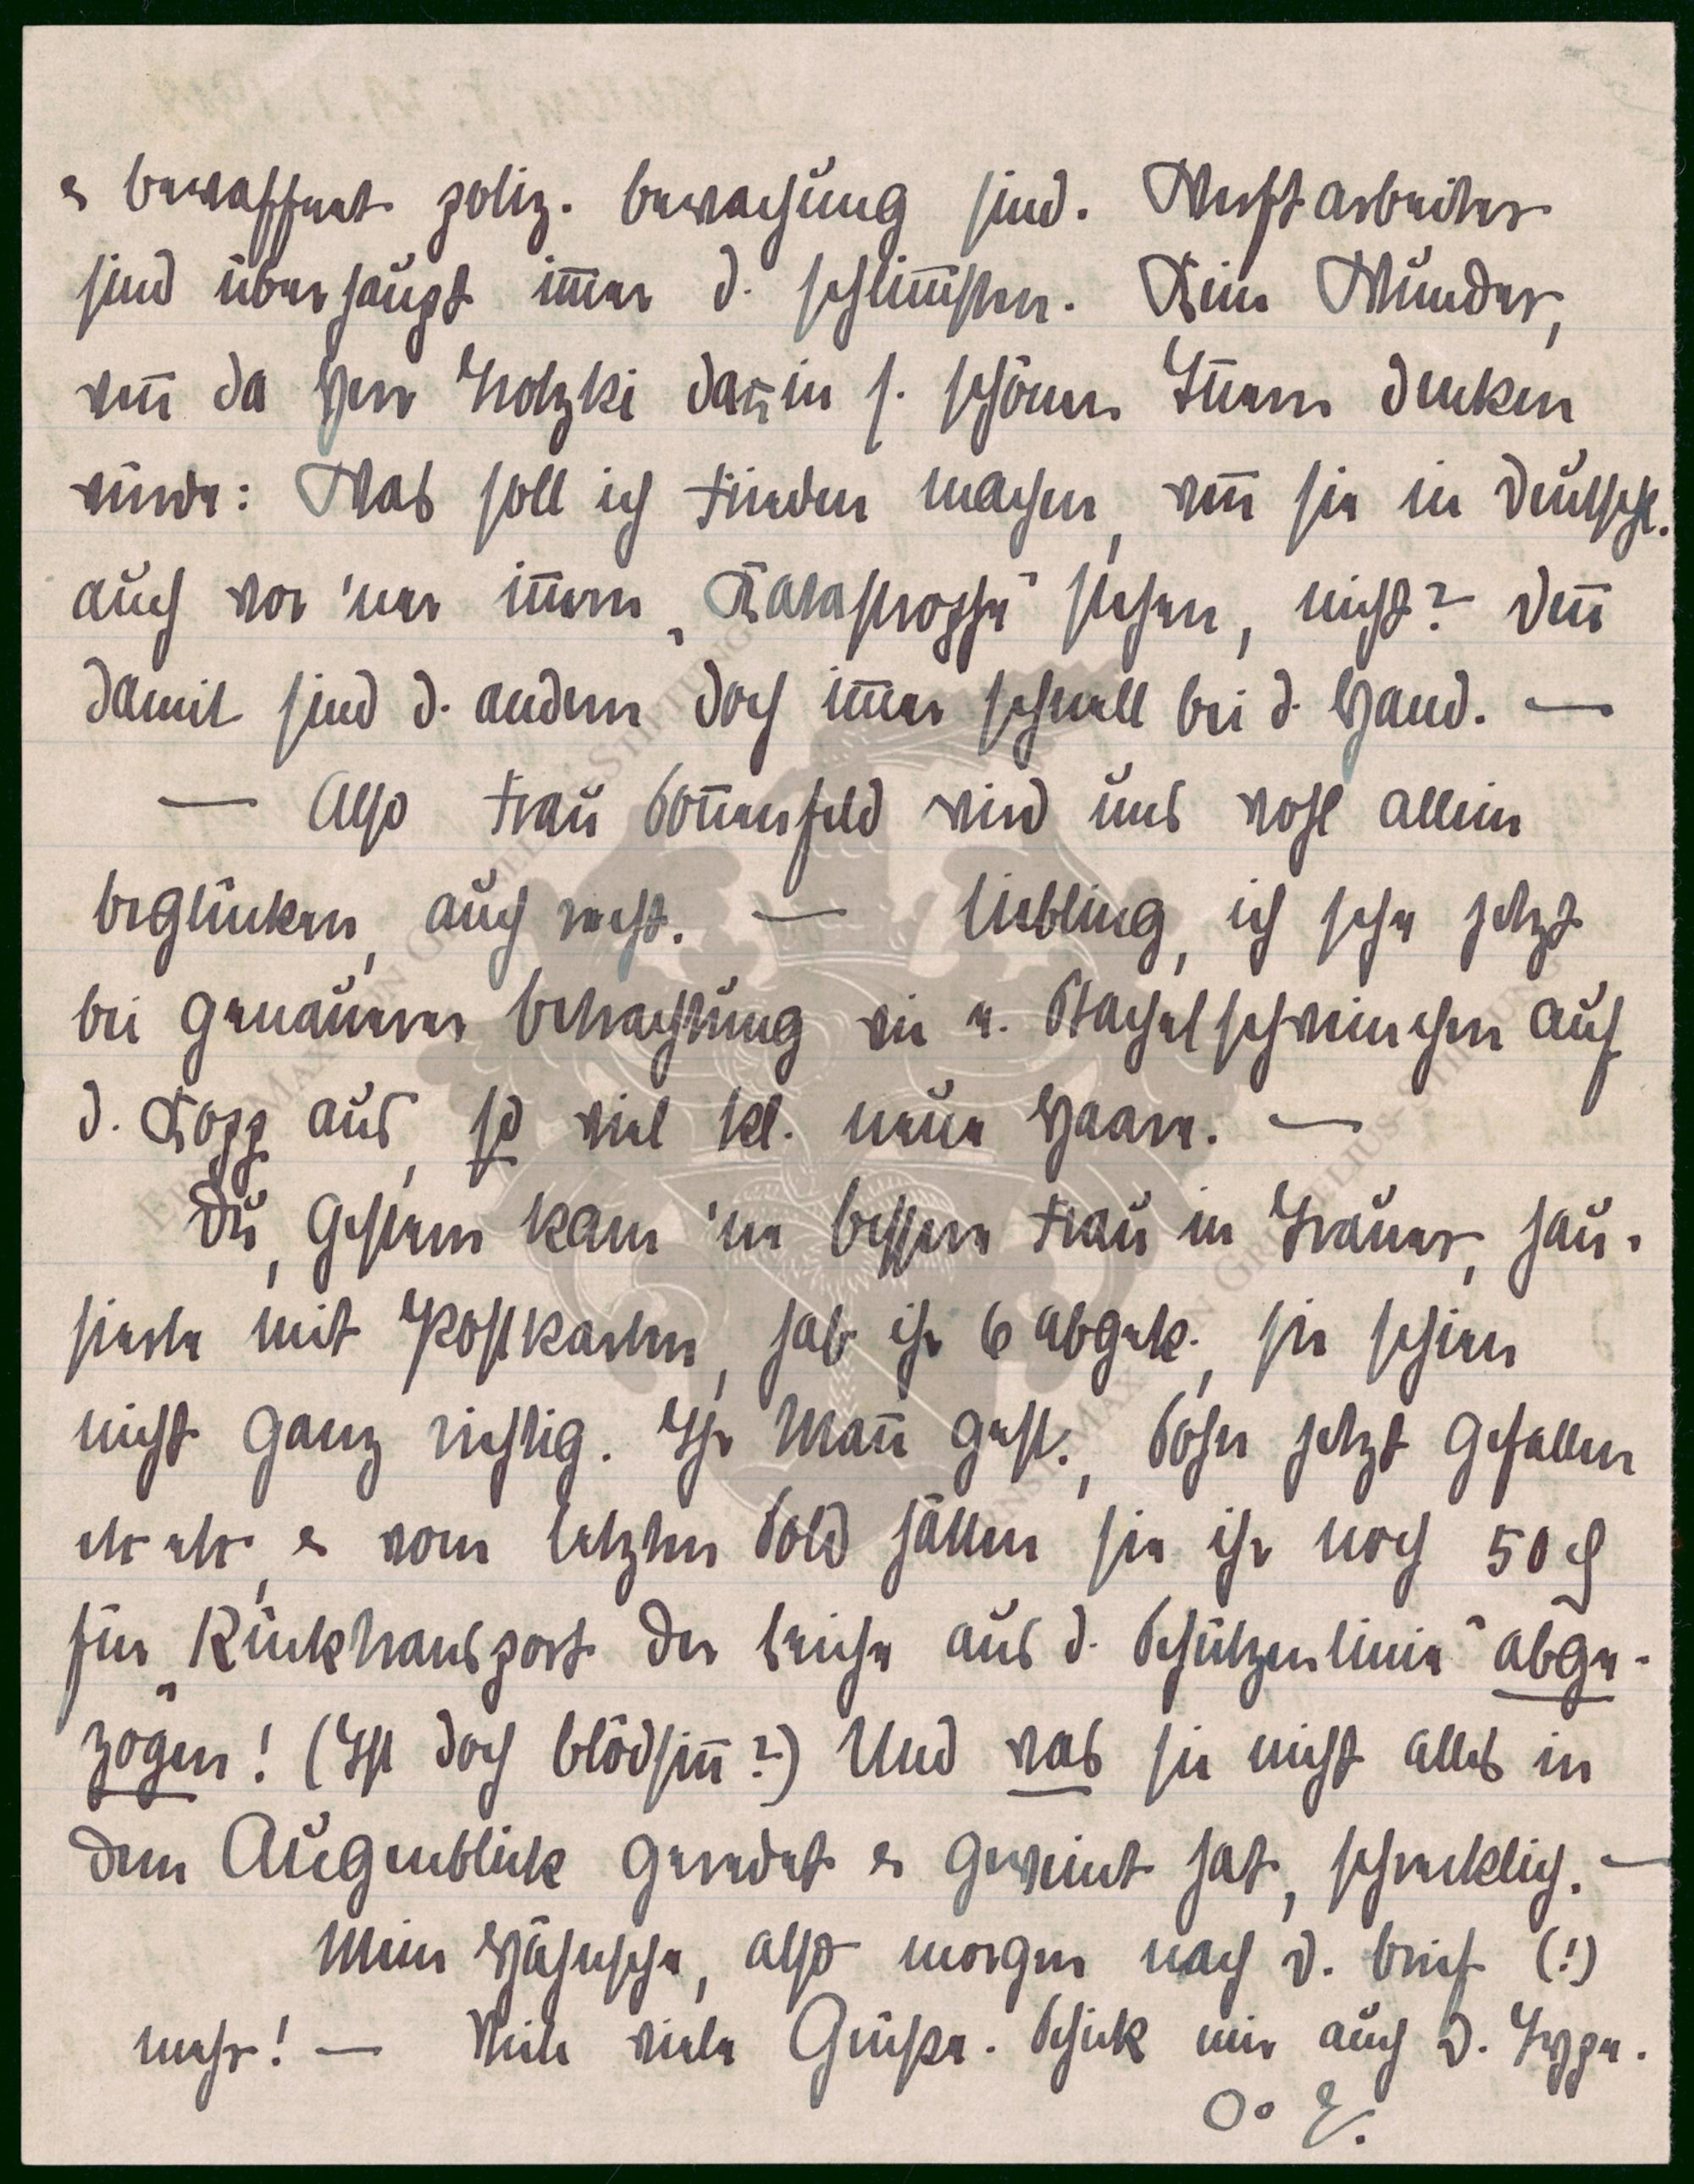 & bewaffnet poliz. Bewachung sind. Werftarbeiter
sind überhaupt im̅er d. schlim̅sten. Kein Wunder,
wen̅ da Herr Trotzki dan̅ in s. schönen Innern denken
würde: Was soll ich Frieden machen, wen̅ sie in Deutschl.
auch vor 'ner innern „Katastrophe" stehen, nicht? Den̅
damit sind d. andern doch im̅er schnell bei d. Hand. —
— Also Frau Son̅enfeld wird uns wohl allein
beglücken, auch recht. — Liebling, ich sehe jetzt
bei genauerer Betrachtung wie e. Stachelschweinchen auf
d. Kopp aus, so viel kl. neue Haare. —
Du, gestern kam 'ne bessere Frau in Trauer, hau-
sierte mit Postkarten, hab ihr 6 abgek., sie schien
nicht ganz richtig. Ihr Man̅ gest., Sohn jetzt gefallen
etc etc, & vom letzten Sold hätten sie ihr noch 50 ₰
für „Rücktransport der Leiche aus d. Schützenlinie" abge-
zogen! (Ist doch Blödsin̅?) Und was sie nicht alles in
dem Augenblick geredet & geweint hat, schrecklich. —
Mein Hähnsche, also morgen nach d. Brief (!)
mehr! — Viele viele Grüße. Schick mir auch d. Type.
O° E.
ERNST MAX VON GRUNELIUS-STIFTUNG